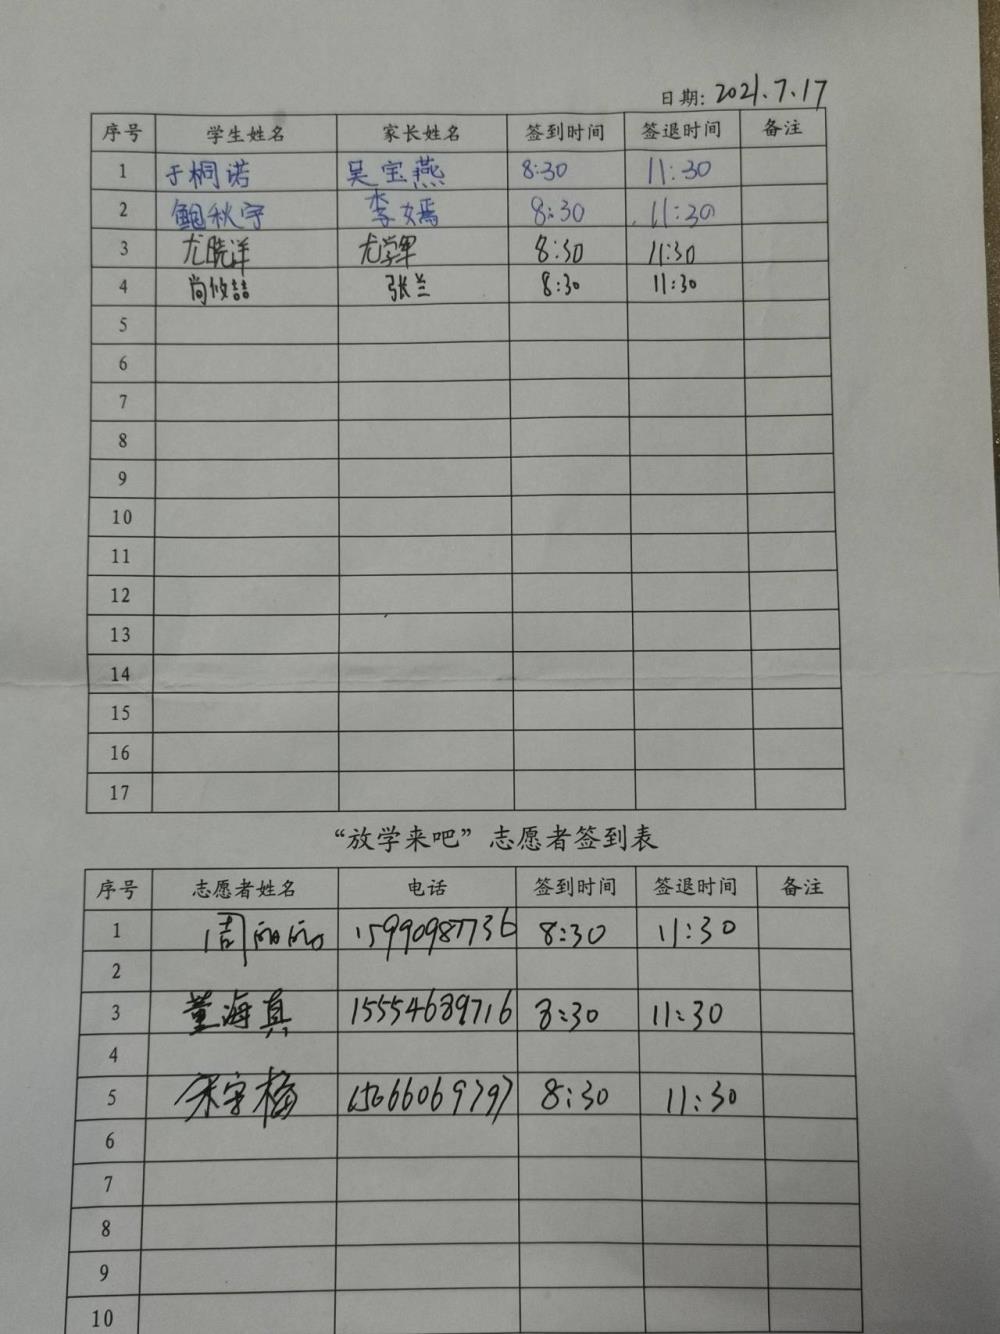 日期: 2021.7.17
序号 学生姓名 家长姓名 签到时间 签退时间 备注
1 于桐诺 吴宝燕 8:30 11:30
2 鲍秋宇 李嫣 8:30 11:30
3 尤晓洋 尤学军 8:30 11:30
4 尚攸喆 张兰 8:30 11:30
5
6
7
8
9
10
11
12
13
14
15
16
17
“放学来吧”志愿者签到表
序号 志愿者姓名 电话 签到时间 签退时间 备注
1 周丽丽 15990987736 8:30 11:30
2
3 董海真 15554689716 8:30 11:30
4
5 宋守梅 15666069797 8:30 11:30
6
7
8
9
10